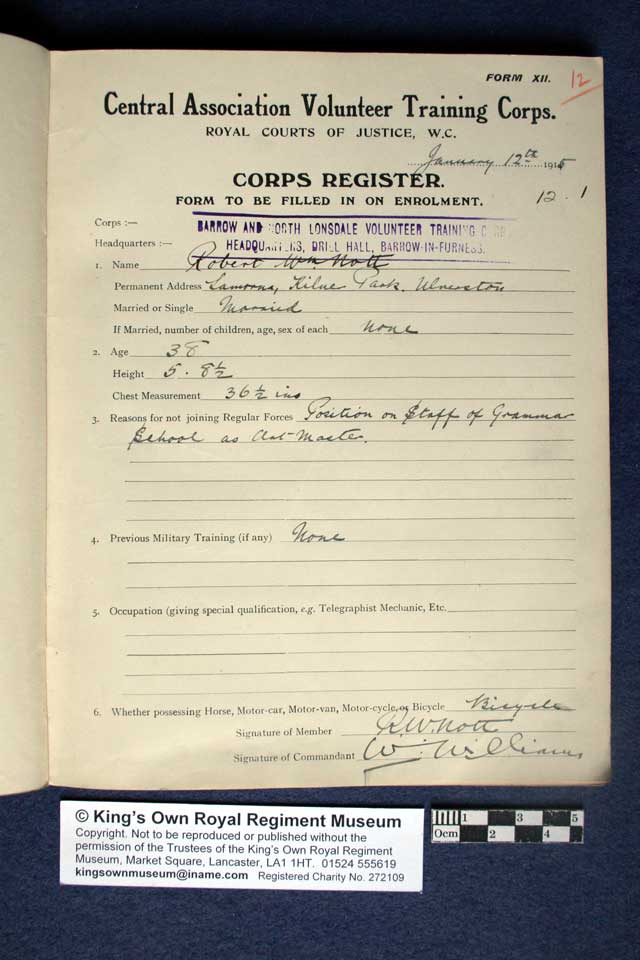 FORM XII. 12
Central Association Volunteer Training Corps.
ROYAL COURTS OF JUSTICE, W.C.
January 12th 1915
CORPS REGISTER.
FORM TO BE FILLED IN ON ENROLMENT. 12.1
Corps :— BARROW AND NORTH LONSDALE VOLUNTEER TRAINING CORPS
Headquarters :— HEADQUARTERS, DRILL HALL, BARROW-IN-FURNESS.
1. Name Robert Wm Nott
Permanent Address Lamorna, Kilner Park, Ulverston
Married or Single Married
If Married, number of children, age, sex of each none
2. Age 38
Height 5. 8½
Chest Measurement 36½ ins
3. Reasons for not joining Regular Forces Position on Staff of Grammar
School as Art-Master.
4. Previous Military Training (if any) None
5. Occupation (giving special qualification, e.g. Telegraphist Mechanic, Etc.
6. Whether possessing Horse, Motor-car, Motor-van, Motor-cycle, or Bicycle Bicycle
Signature of Member R. W. Nott
Signature of Commandant W. Williams
© King's Own Royal Regiment Museum
Copyright. Not to be reproduced or published without the
permission of the Trustees of the King's Own Royal Regiment
Museum, Market Square, Lancaster, LA1 1HT. 01524 555619
kingsownmuseum@iname.com Registered Charity No. 272109
1 3 5
0cm 2 4